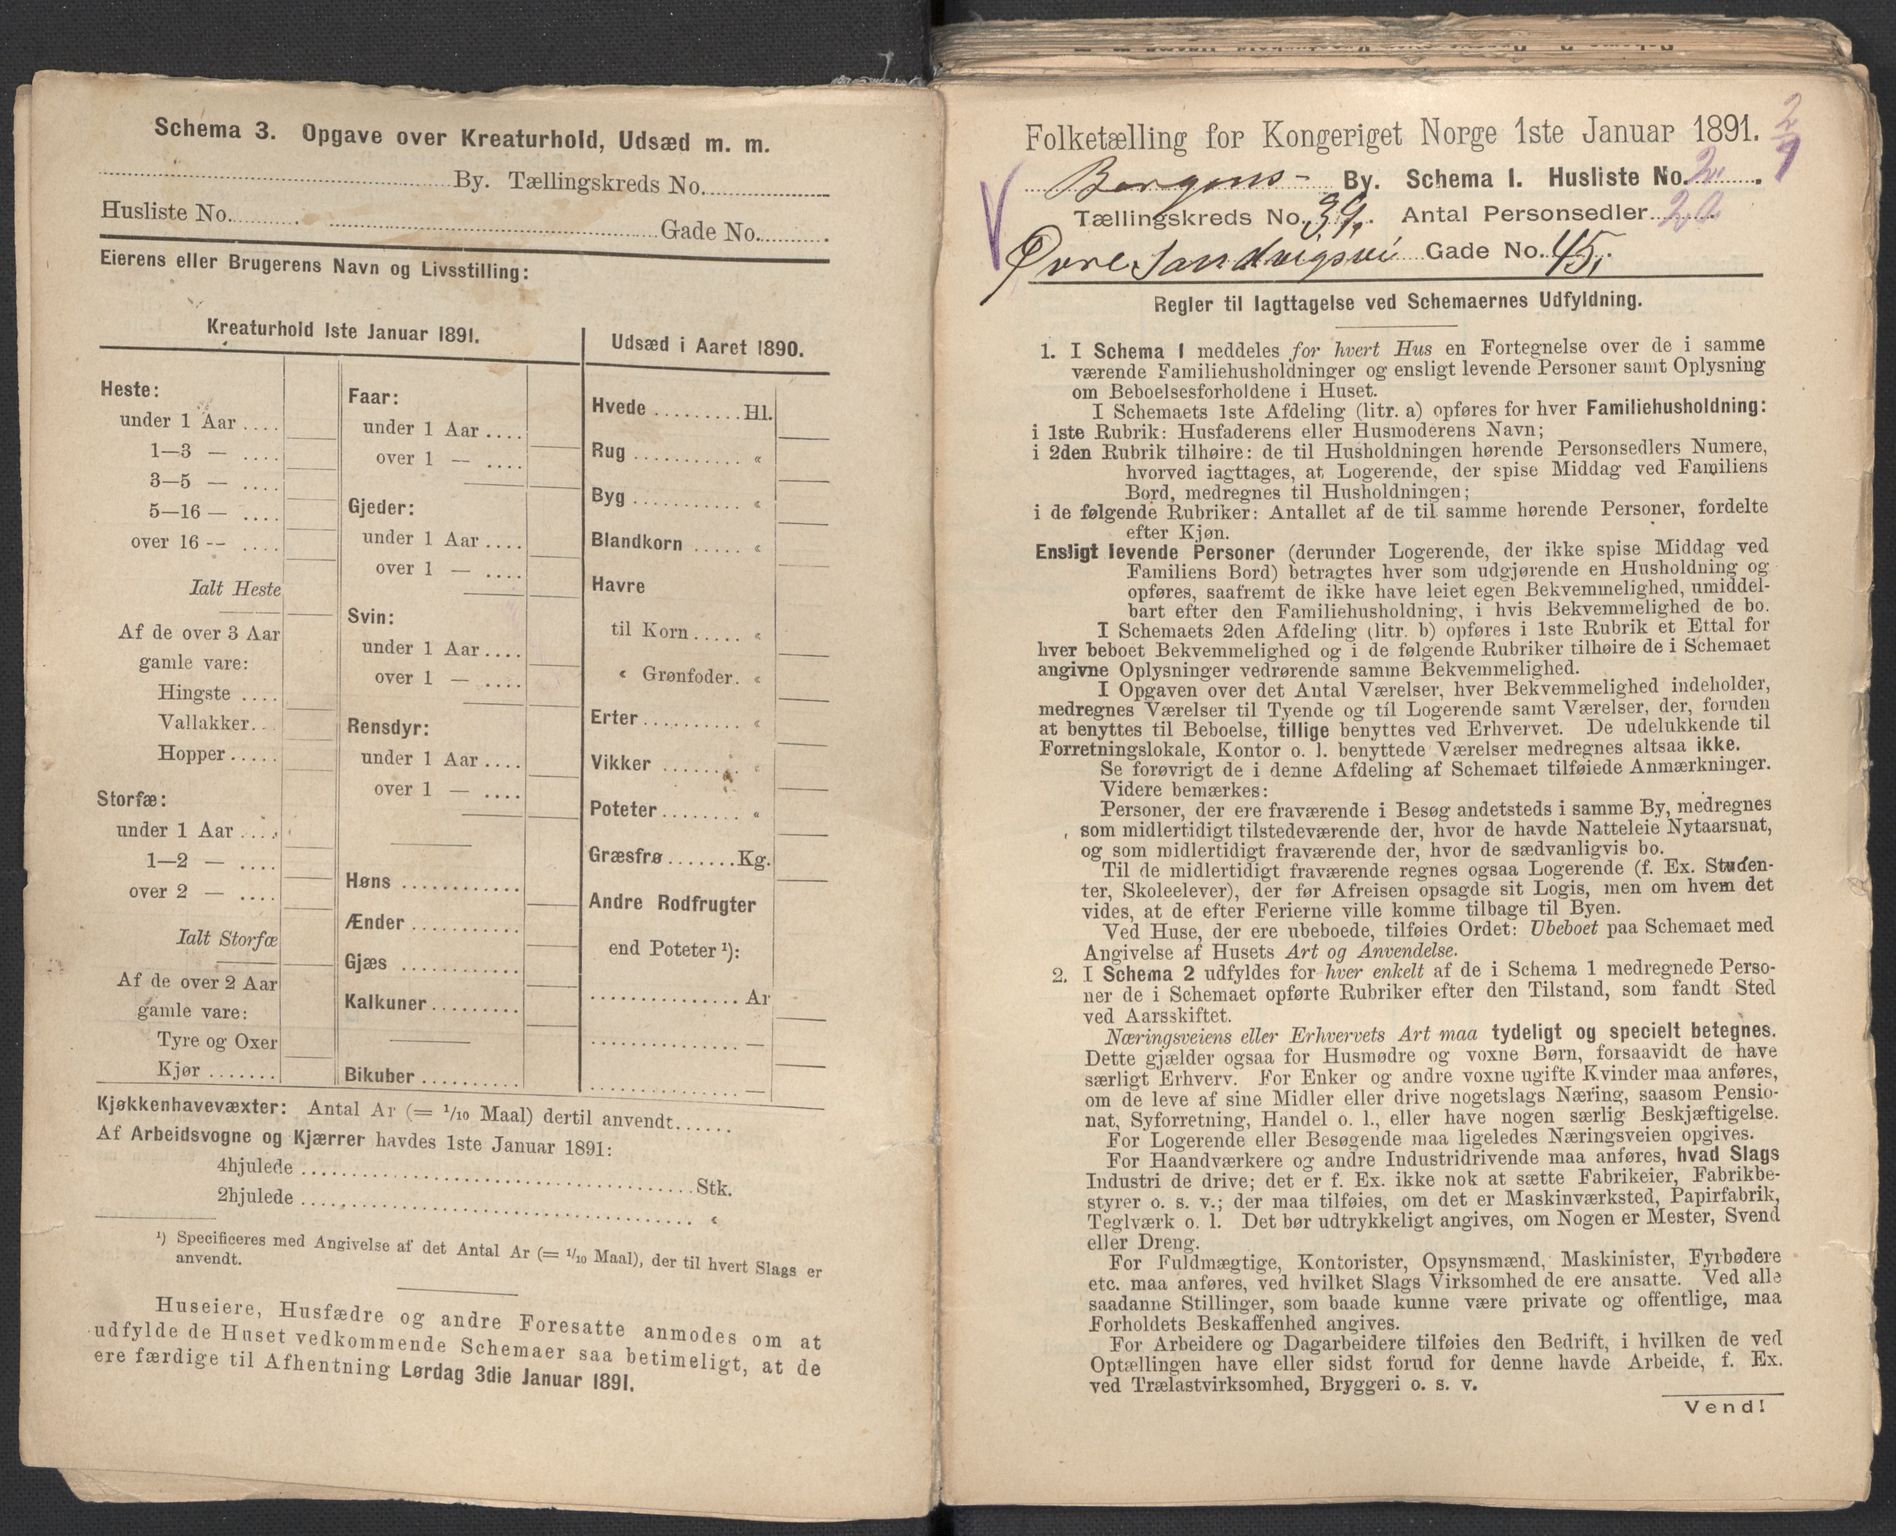 Schema 3. Opgave over Kreaturhold, Udsæd m. m.
By. Tællingskreds No.
Husliste No. Gade No.
Eierens eller Brugerens Navn og Livsstilling:
Kreaturhold 1ste Januar 1891.
Heste:
under 1 Aar
1—3 —
3—5 —
5—16 —
over 16 --
Ialt Heste
Af de over 3 Aar
gamle vare:
Hingste
Vallakker
Hopper
Storfæ:
under 1 Aar
1—2 —
over 2 —
Ialt Storfæ
Af de over 2 Aar
gamle vare:
Tyre og Oxer
Kjør
Faar:
under 1 Aar
over 1 —
Gjeder:
under 1 Aar
over 1 —
Svin:
under 1 Aar
over 1 —
Rensdyr:
under 1 Aar
over 1 —
Høns
Ænder
Gjæs
Kalkuner
Bikuber
Udsæd i Aaret 1890.
Hvede Hl.
Rug «
Byg «
Blandkorn «
Havre
til Korn «
« Grønfoder «
Erter «
Vikker «
Poteter «
Græsfrø Kg.
Andre Rodfrugter
end Poteter ¹):
Ar
—
—
Kjøkkenhavevæxter: Antal Ar (= 1/10 Maal) dertil anvendt
Af Arbeidsvogne og Kjærrer havdes 1ste Januar 1891:
4hjulede Stk.
2hjulede «
¹) Specificeres med Angivelse af det Antal Ar (= 1/10 Maal), der til hvert Slags er
anvendt.
Huseiere, Husfædre og andre Foresatte anmodes om at
udfylde de Huset vedkommende Schemaer saa betimeligt, at de
ere færdige til Afhentning Lørdag 3die Januar 1891.
Folketælling for Kongeriget Norge 1ste Januar 1891. 2/7
Bergens By. Schema 1. Husliste No. 2.
Tællingskreds No. 39. Antal Personsedler 20
Øvre Sandvigsvei Gade No. 45.
Regler til Iagttagelse ved Schemaernes Udfyldning.
1. I Schema 1 meddeles for hvert Hus en Fortegnelse over de i samme
værende Familiehusholdninger og ensligt levende Personer samt Oplysning
om Beboelsesforholdene i Huset.
I Schemaets 1ste Afdeling (litr. a) opføres for hver Familiehusholdning:
i 1ste Rubrik: Husfaderens eller Husmoderens Navn;
i 2den Rubrik tilhøire: de til Husholdningen hørende Personsedlers Numere,
hvorved iagttages, at Logerende, der spise Middag ved Familiens
Bord, medregnes til Husholdningen;
i de følgende Rubriker: Antallet af de til samme hørende Personer, fordelte
efter Kjøn.
Ensligt levende Personer (derunder Logerende, der ikke spise Middag ved
Familiens Bord) betragtes hver som udgjørende en Husholdning og
opføres, saafremt de ikke have leiet egen Bekvemmelighed, umiddel-
bart efter den Familiehusholdning, i hvis Bekvemmelighed de bo.
I Schemaets 2den Afdeling (litr. b) opføres i 1ste Rubrik et Ettal for
hver beboet Bekvemmelighed og i de følgende Rubriker tilhøire de i Schemaet
angivne Oplysninger vedrørende samme Bekvemmelighed.
I Opgaven over det Antal Værelser, hver Bekvemmelighed indeholder,
medregnes Værelser til Tyende og til Logerende samt Værelser, der, foruden
at benyttes til Beboelse, tillige benyttes ved Erhvervet. De udelukkende til
Forretningslokale, Kontor o. l. benyttede Værelser medregnes altsaa ikke.
Se forøvrigt de i denne Afdeling af Schemaet tilføiede Anmærkninger.
Videre bemærkes:
Personer, der ere fraværende i Besøg andetsteds i samme By, medregnes
som midlertidigt tilstedeværende der, hvor de havde Natteleie Nytaarsnat,
og som midlertidigt fraværende der, hvor de sædvanligvis bo.
Til de midlertidigt fraværende regnes ogsaa Logerende (f. Ex. Studen-
ter, Skoleelever), der før Afreisen opsagde sit Logis, men om hvem det
vides, at de efter Ferierne ville komme tilbage til Byen.
Ved Huse, der ere ubeboede, tilføies Ordet: Ubeboet paa Schemaet med
Angivelse af Husets Art og Anvendelse.
2. I Schema 2 udfyldes for hver enkelt af de i Schema 1 medregnede Perso-
ner de i Schemaet opførte Rubriker efter den Tilstand, som fandt Sted
ved Aarsskiftet.
Næringsveiens eller Erhvervets Art maa tydeligt og specielt betegnes.
Dette gjælder ogsaa for Husmødre og voxne Børn, forsaavidt de have
særligt Erhverv. For Enker og andre voxne ugifte Kvinder maa anføres,
om de leve af sine Midler eller drive nogetslags Næring, saasom Pensio-
nat, Syforretning, Handel o. l., eller have nogen særlig Beskjæftigelse.
For Logerende eller Besøgende maa ligeledes Næringsveien opgives.
For Haandværkere og andre Industridrivende maa anføres, hvad Slags
Industri de drive; det er f. Ex. ikke nok at sætte Fabrikeier, Fabrikbe-
styrer o. s. v.; der maa tilføies, om det er Maskinværksted, Papirfabrik,
Teglværk o. l. Det bør udtrykkeligt angives, om Nogen er Mester, Svend
eller Dreng.
For Fuldmægtige, Kontorister, Opsynsmænd, Maskinister, Fyrbødere
etc. maa anføres, ved hvilket Slags Virksomhed de ere ansatte. Ved alle
saadanne Stillinger, som baade kunne være private og offentlige, maa
Forholdets Beskaffenhed angives.
For Arbeidere og Dagarbeidere tilføies den Bedrift, i hvilken de ved
Optællingen have eller sidst forud for denne havde Arbeide, f. Ex.
ved Trælastvirksomhed, Bryggeri o. s. v.
Vend!